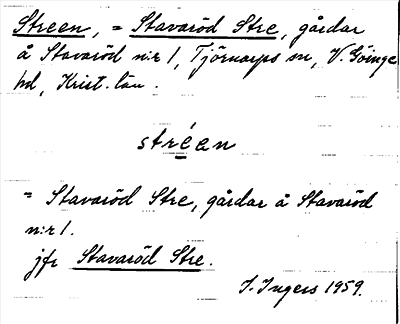 Streen, = Stavaröd Stre, gårdar
å Stavaröd n:r 1, Tjörnarps sn, V. Göinge
hd, Krist. län.
stréen
= Stavaröd Stre, gårdar å Stavaröd
n:r 1.
jfr Stavaröd Stre.
I. Ingers 1959.